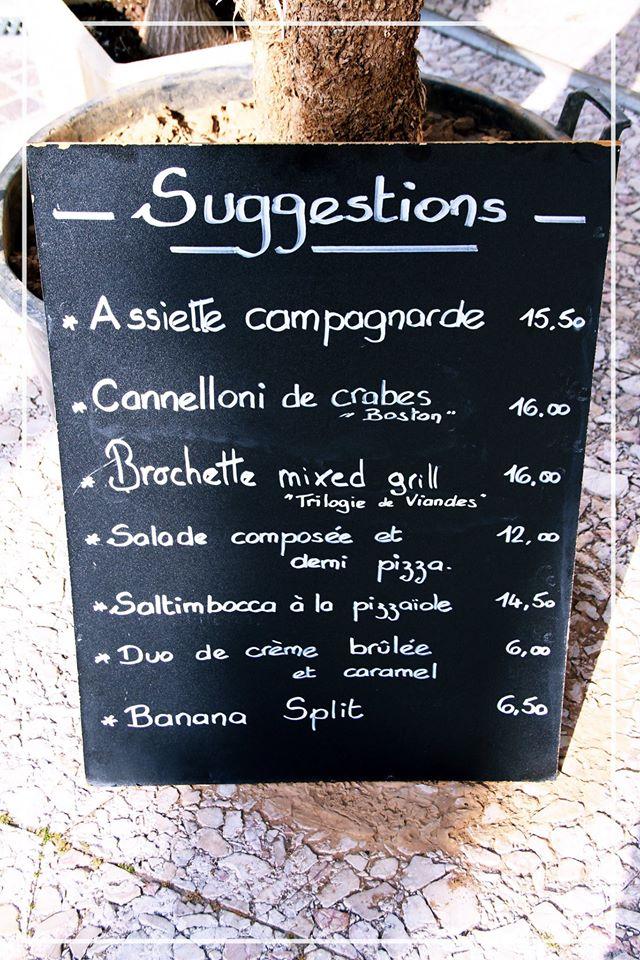 — Suggestions —
* Assiette campagnarde 15.50
* Cannelloni de crabes 16.00
"Boston"
* Brochette mixed grill 16.00
"Trilogie de Viandes"
* Salade composée et 12,00
demi pizza.
* Saltimbocca à la pizzaïole 14,50
* Duo de crème brûlée 6,00
et caramel
* Banana Split 6,50